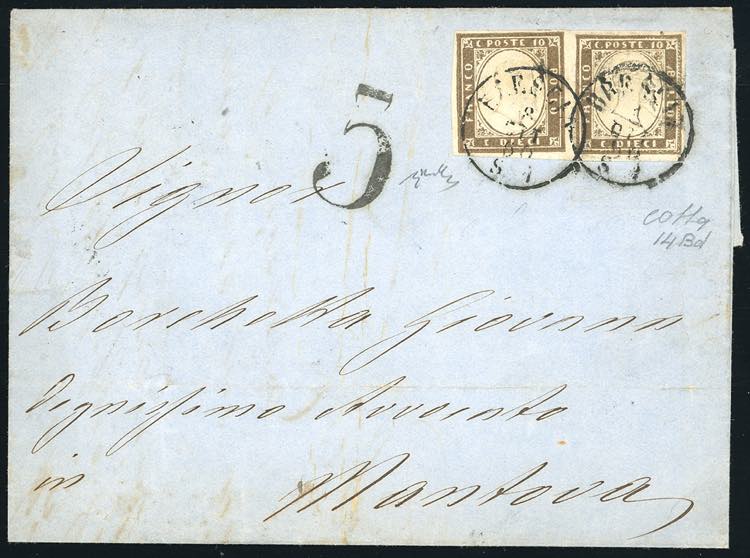 C. POSTE 10 C. POSTE 10
FRANCO
C. DIECI C. DIECI
5
Signor
cotta
14Bd
Borchetta Giovanni
Degnissimo Avvocato
in
Mantova